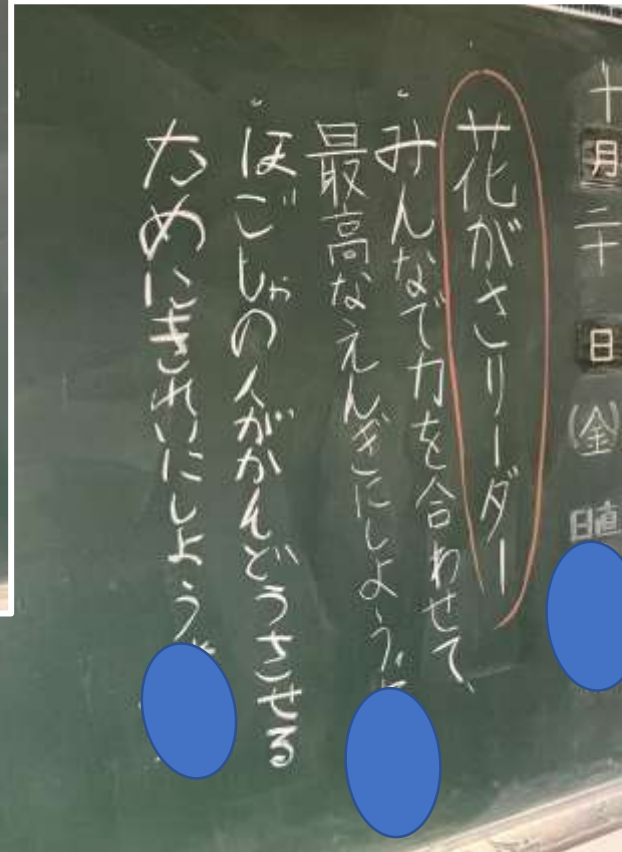 十月二十日(金)日直
花がさリーダー
・みんなで力を合わせて、
最高なえんぎにしよう。
・ほごしゃの人がかんどうさせる
ためにきれいにしよう。